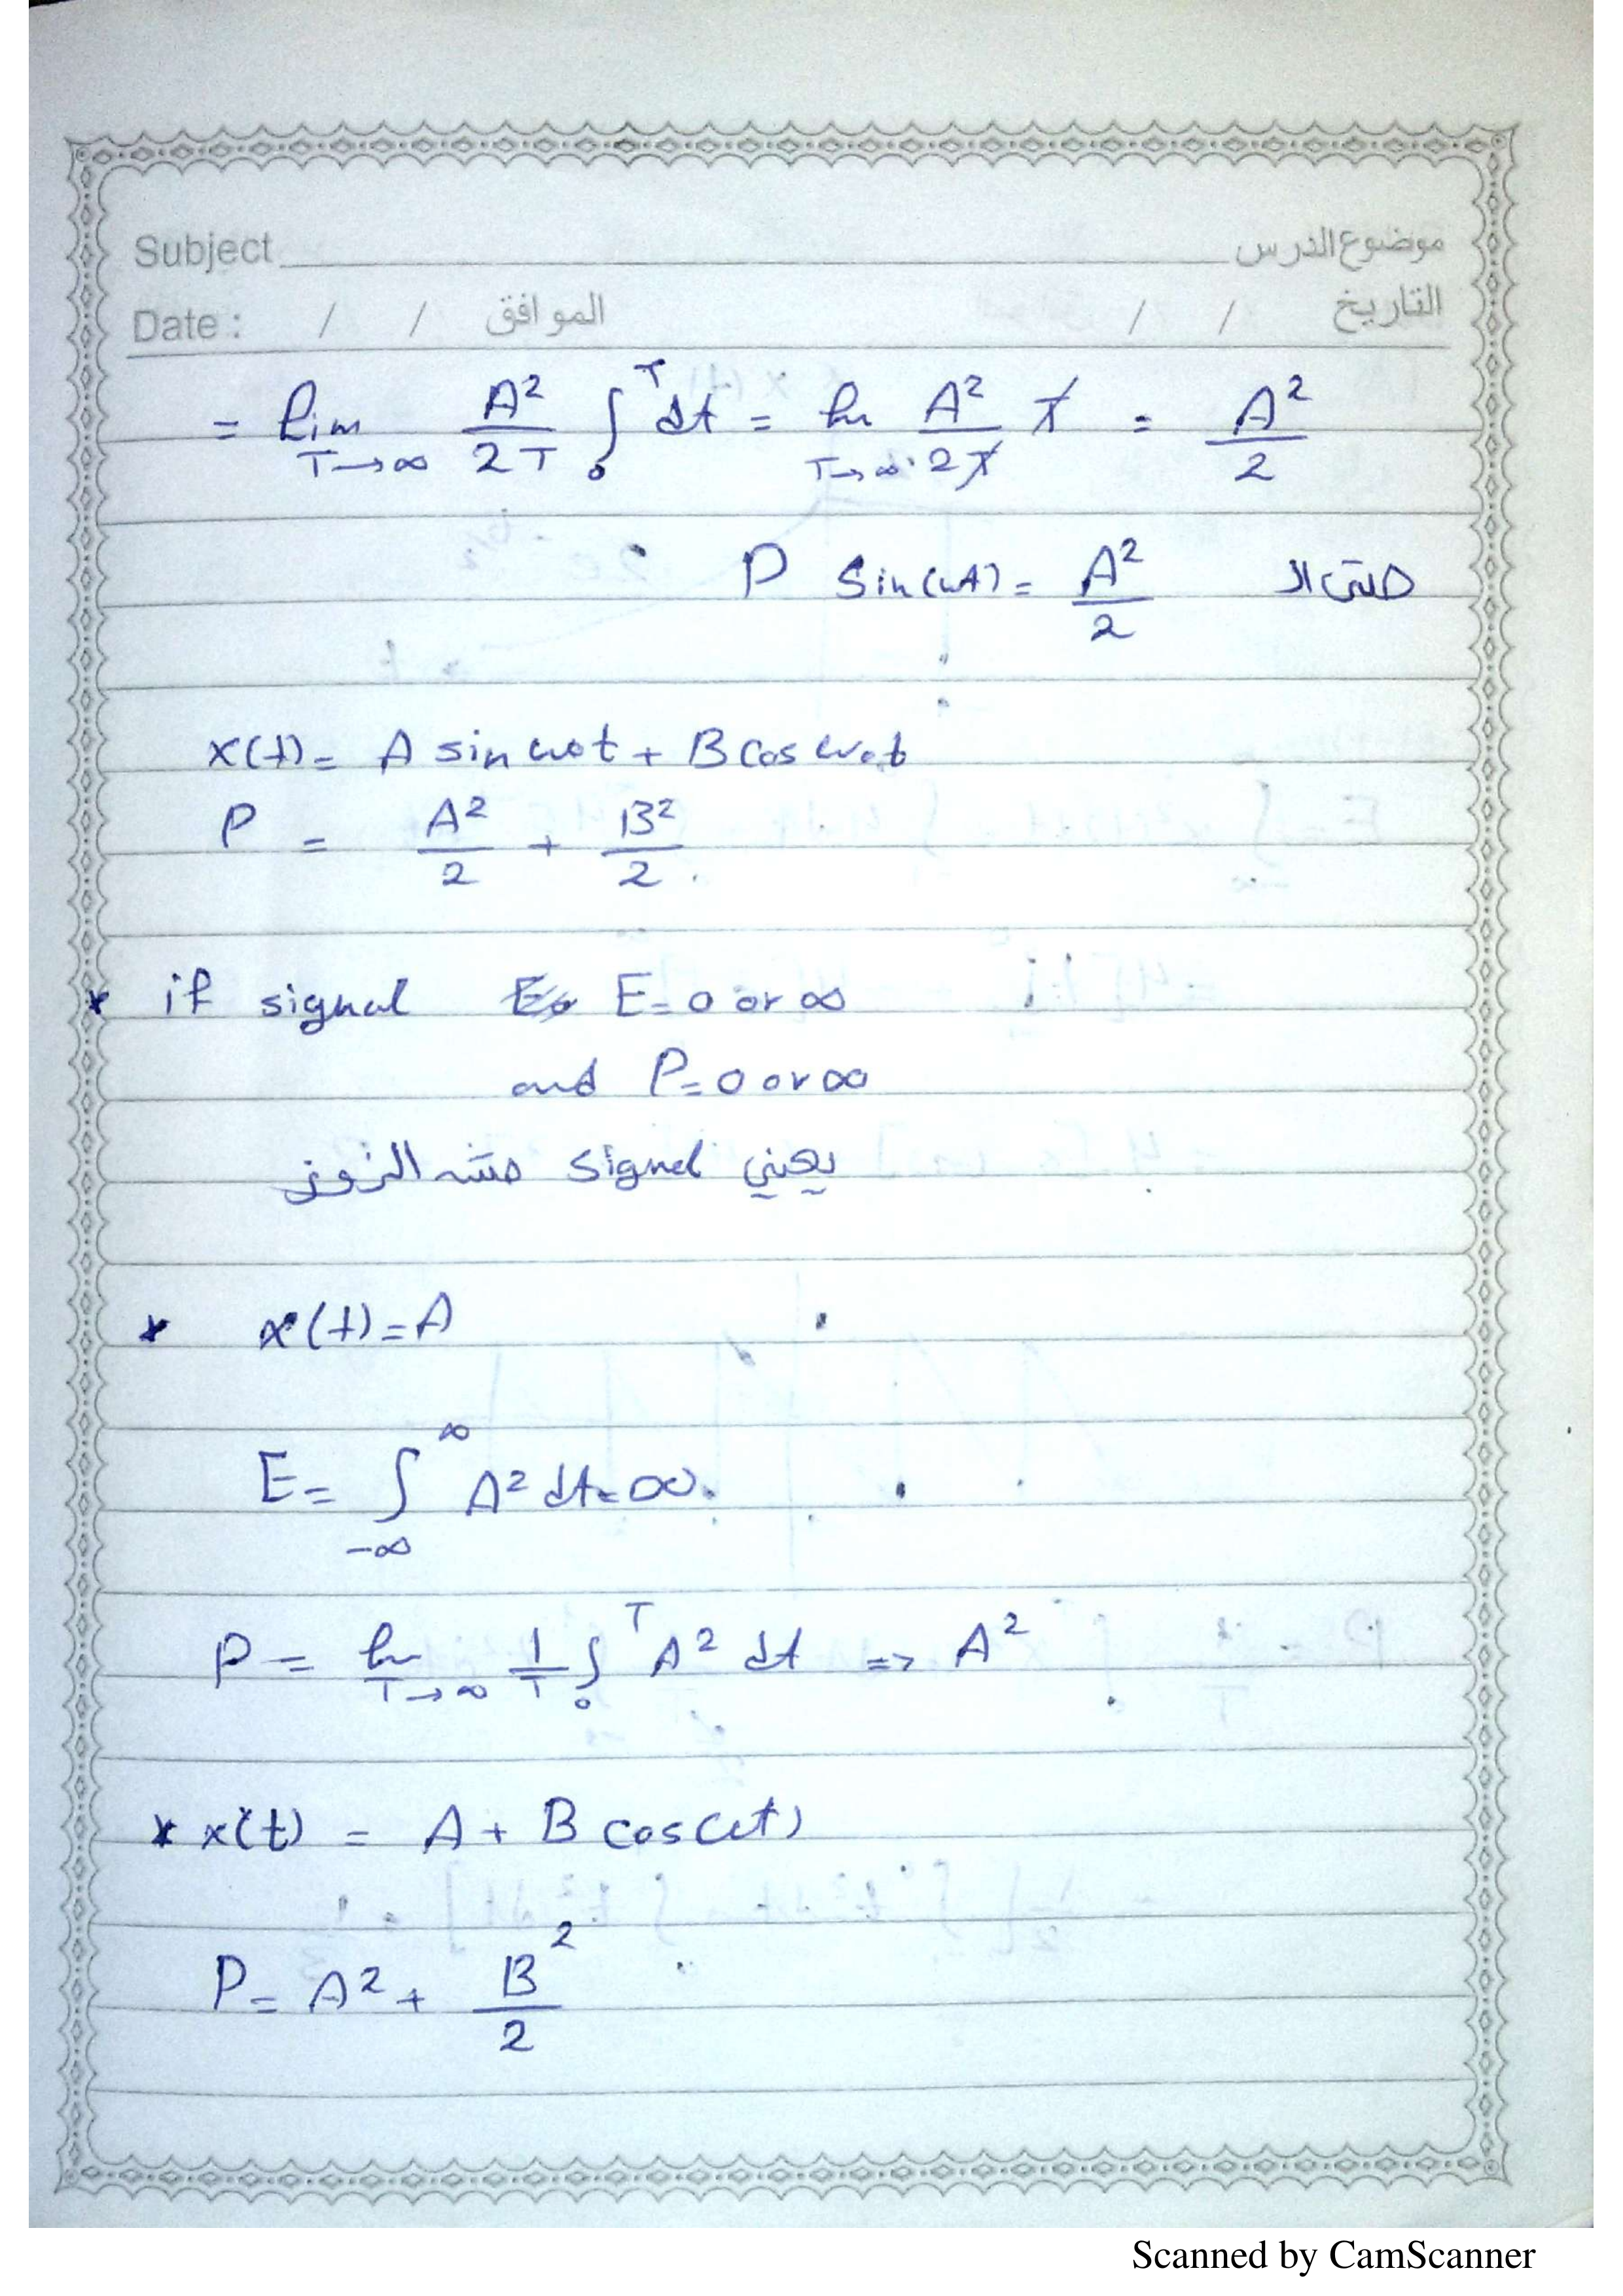 Subject موضوع الدرس
Date : / / الموافق / / التاريخ
= lim T→∞ A²/2T ∫₀ᵀ dt = lim T→∞ A²/2T T = A²/2
حتى الـ P Sin(ωt) = A²/2
x(t) = A sin ω₀t + B cos ω₀t
P = A²/2 + B²/2
* if signal E = 0 or ∞
and P = 0 or ∞
يعني signal
* x(t) = A
E = ∫₋∞^∞ A² dt = ∞.
P = lim T→∞ 1/T ∫₀ᵀ A² dt => A²
* x(t) = A + B cos(ωt)
P = A² + B²/2
Scanned by CamScanner